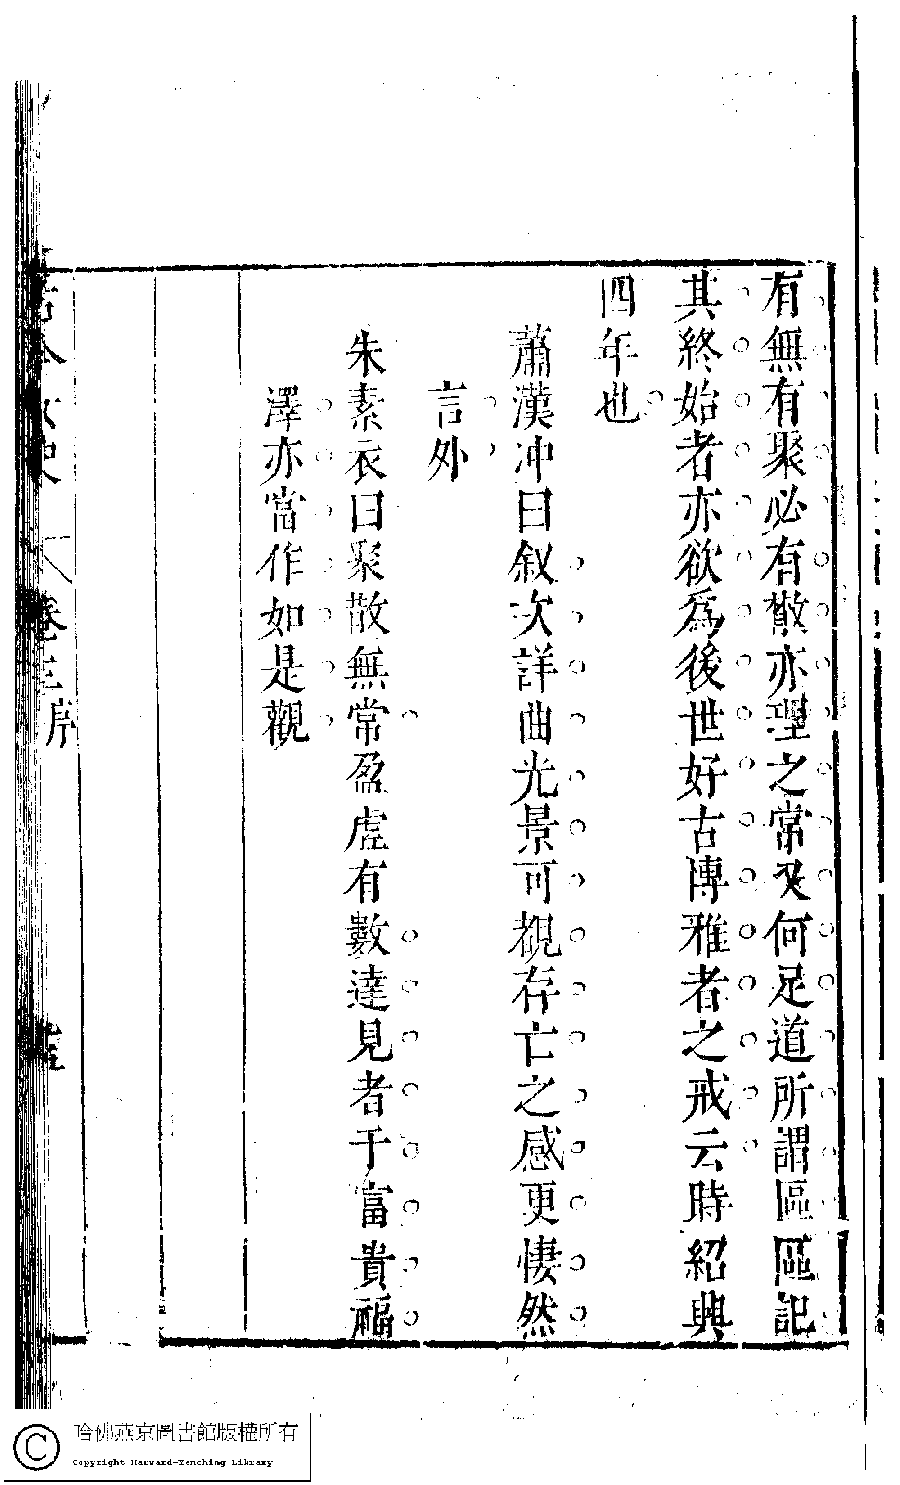 有無有聚必有散亦理之常又何足道所謂區區記
其終始者亦欲爲後世好古博雅者之戒云時紹興
四年也
蕭漢冲曰叙次詳曲光景可覩存亡之感更悽然
言外
朱素衣曰聚散無常盈虛有數達見者于富貴福
澤亦當作如是觀
卷三序
哈佛燕京圖書館版權所有
Copyright Harvard-Yenching Library